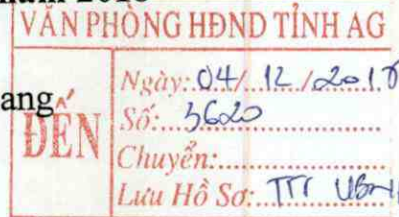 năm 2018
VĂN PHÒNG HĐND TỈNH AG
ang
ĐẾN
Ngày: 04/12/2018
Số: 3620
Chuyển:
Lưu Hồ Sơ: TTr